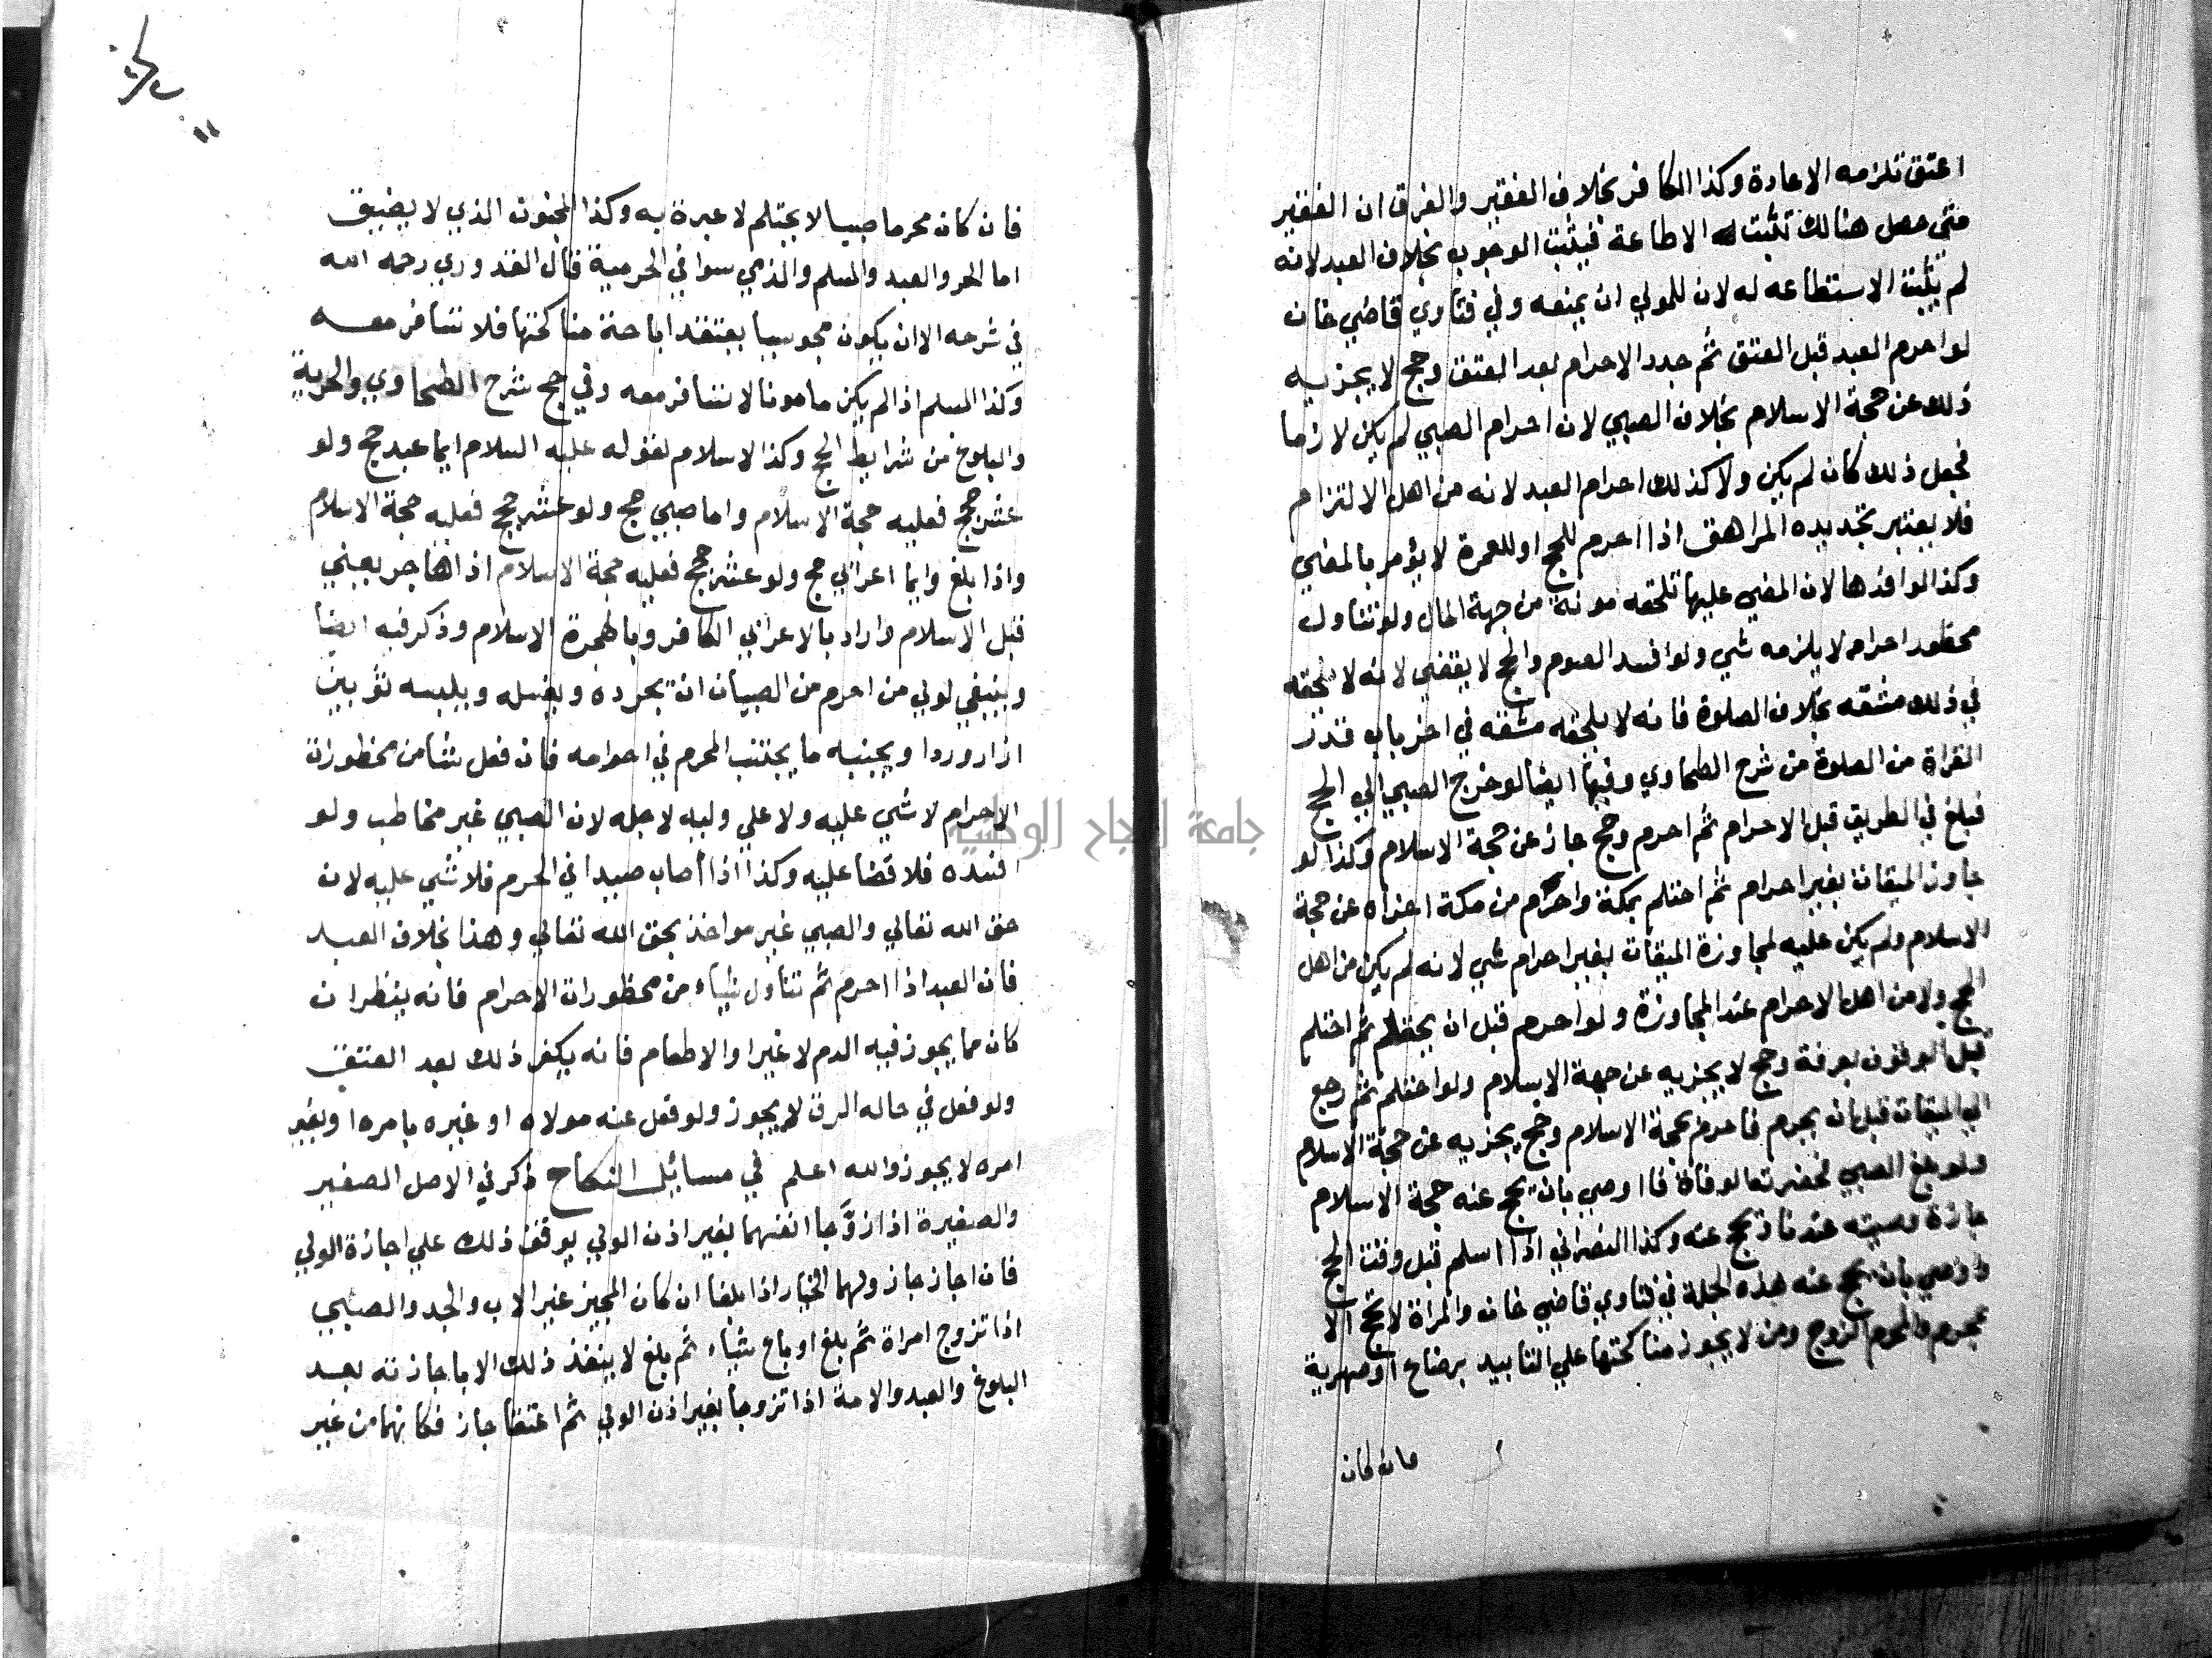 اعتق تلزمه الاعادة وكذا الكافر بخلاف الفقير والفرق ان الفقير
متي حصل هنالك تثبت له الاطاعة فيثبت الوجوب بخلاف العبد لانه
لم يثبت الاستطاعه له لان للمولي ان يمنعه وفي فتاوي قاضي خان
لو احرم العبد قبل العتق ثم جدد الاحرام بعد العتق وحج لا يجزيه
ذلك عن حجة الاسلام بخلاف الصبي لان احرام الصبي لم يكن لازما
فجعل ذلك كان لم يكن ولا كذلك احرام العبد لانه من اهل الالتزام
فلا يعتبر تجديده المراهق اذا احرم للحج او للعمرة لا يؤمر بالمضي
وكذا لو افسدها لان المضي عليها تلحقه مونة من جهة المال ولو تناول
محظور احرام لا يلزمه شي ولو افسد الصوم والحج لا يقضي لانه لا تلحقه
في ذلك مشقه بخلاف الصلوة فانه لا يلحقه مشقه في اخر باب قدر
القراة من الصلوة من شرح الطحاوي وفيها ايضا لو خرج الصبي الي الحج
فبلغ في الطريق قبل الاحرام ثم احرم وحج جاز عن حجة الاسلام وكذا لو
جاوز الميقات بغير احرام ثم احتلم بمكة واحرم من مكة اجزاه عن حجة
الاسلام ولم يكن عليه لمجاوزة الميقات بغير احرام شي لانه لم يكن من اهل
الحج ولا من اهل الاحرام عند المجاوزة ولو احرم قبل ان يحتلم ثم احتلم
قبل الوقوف بعرفة وحج لا يجزيه عن حجة الاسلام ولو احتلم ثم رجع
الي الميقات قبل ان يحرم فاحرم بحجة الاسلام وحج يجزيه عن حجة الاسلام
ولو بلغ الصبي فحضرته الوفاة فاوصي بان يحج عنه حجة الاسلام
جازة وصيته عندنا وتحج عنه وكذا النصراني اذا اسلم قبل وقت الحج
واوصي بان يحج عنه هذه الجملة في فتاوي قاضي خان والمراة لا تحج الا
بمحرم والمحرم الزوج ومن لا يجوز مناكحتها علي التابيد برضاع او صهرية
فان كان
فان كان محرما صبيا لا يحتلم لا عبرة به وكذا المجنون الذي لا يضيق
اما الحر والعبد والمسلم والذمي سوا في الحرمية قال القدوري رحمه الله
في شرحه الا ان يكون مجوسيا يعتقد اباحة مناكحتها فلا تسافر معه
وكذا المسلم اذا لم يكن مامونا لا تسافر معه وفي حج شرح الطحاوي والحرية
والبلوغ من شرايط الحج وكذا الاسلام لقوله عليه السلام ايما عبد حج ولو
عشر حجج فعليه حجة الاسلام واما صبي حج ولو عشر حجج فعليه حجة الاسلام
واذا بلغ وايما اعرابي حج ولو عشر حجج فعليه حجة الاسلام اذا هاجر يعني
قبل الاسلام واراد بالاعرابي الكافر وبالهجرة الاسلام وذكر فيه ايضا
وينبغي لولي من احرم من الصبيان ان يجرده ويغسله ويلبسه ثوبين
ازار وردا ويجنبه ما يجتنب المحرم في احرامه فان فعل شيا من محظورات
الاحرام لا شي عليه ولا علي وليه لاجله لان الصبي غير مخاطب ولو
افسده فلا قضا عليه وكذا اذا اصاب صيدا في الحرم فلا شي عليه لان
حق الله تعالي والصبي غير مواخذ بحق الله تعالي وهذا بخلاف العبد
فان العبد اذا احرم ثم تناول شياء من محظورات الاحرام فانه ينظر ان
كان مما يجوز فيه الدم لا غير او الاطعام فانه يكفر ذلك بعد العتق
ولو فعل في حاله الرق لا يجوز ولو فعل عنه مولاه او غيره بامره او بغير
امره لا يجوز والله اعلم في مسائل النكاح ذكر في الاصل الصغير
والصغيرة اذا زوّجا انفسهما بغير اذن الولي يوقف ذلك علي اجازة الولي
فان اجاز جاز ولهما الخيار اذا بلغا ان كان المجيز غير الاب والجد والصبي
اذا تزوج امراة ثم بلغ او باع شياء ثم بلغ لا ينفذ ذلك الا باجازته بعد
البلوغ والعبد والامة اذا تزوجا بغير اذن الولي ثم اعتقا جاز فكانهما من غير
جامعة النجاح الوطنية